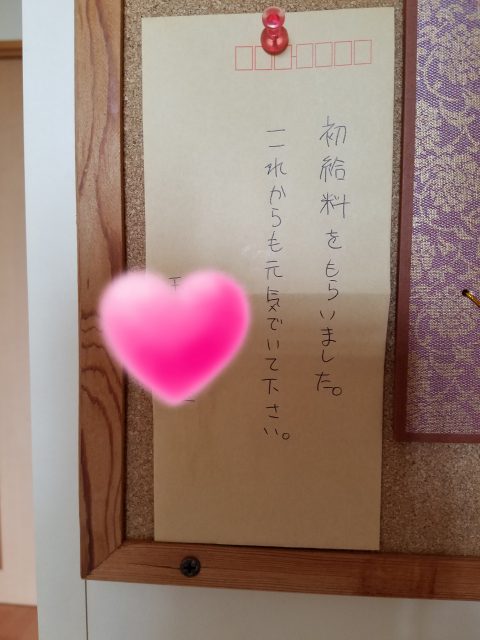 初給料をもらいました。
これからも元気でいて下さい。